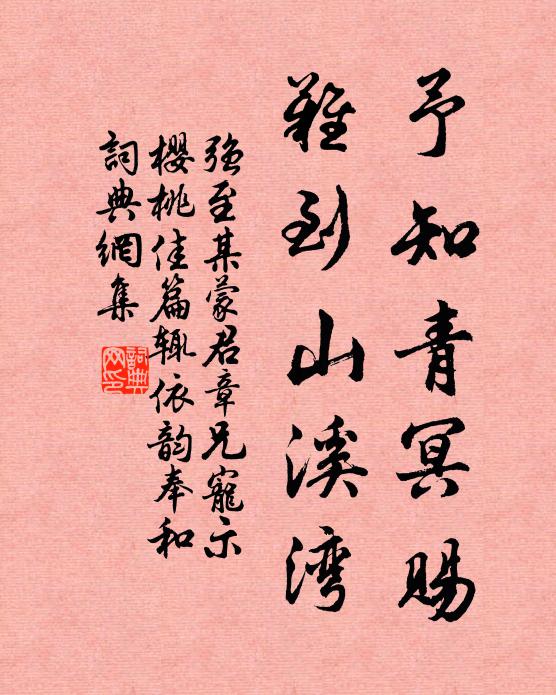 予知青冥赐
难到山溪湾
強至某蒙君章兄寵示
櫻桃佳篇輒依韵奉和
詞典網集
詞典网印